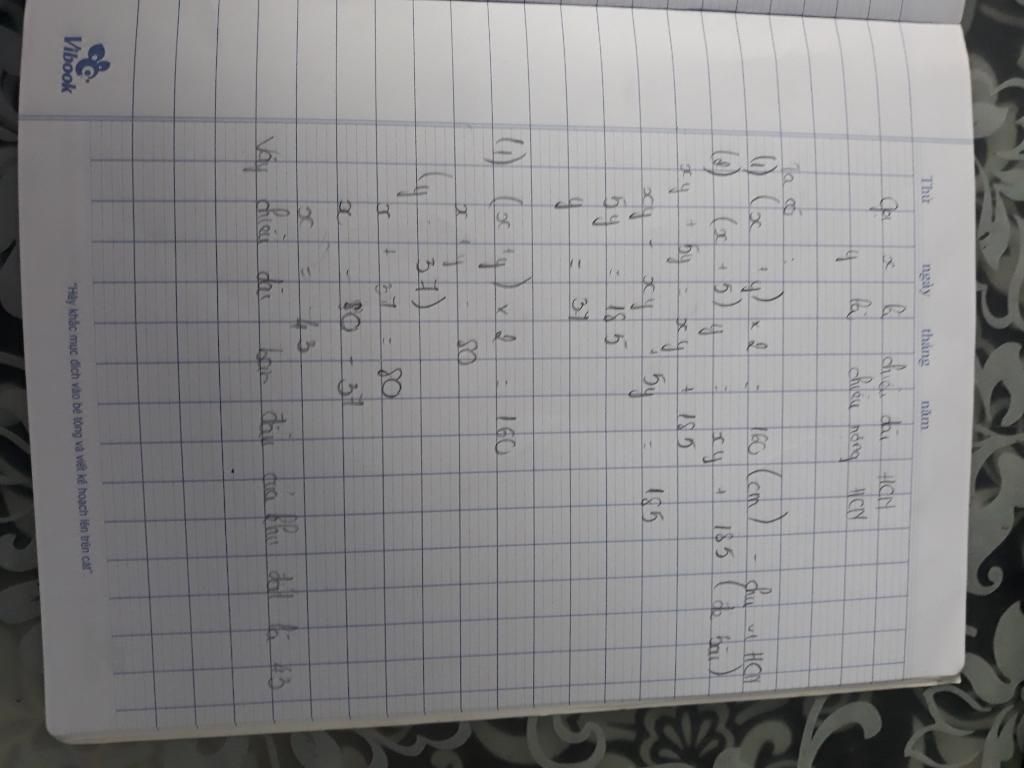 Vibook
Thứ ngày tháng năm
Gọi x là chiều dài HCN
y là chiều rộng HCN
Ta có:
(1) (x + y) x 2 = 160 (cm) - chu vi HCN
(2) (x + 5) y = xy + 185 (đề bài)
xy + 5y = xy + 185
xy - xy + 5y = 185
5y = 185
y = 37
(1) (x + y) x 2 = 160
x + y = 80
(y = 37)
x + 37 = 80
x = 80 - 37
x = 43
Vậy chiều dài ban đầu của khu đất là 43
"Hãy khắc mục đích vào bê tông và viết kế hoạch lên trên cát".